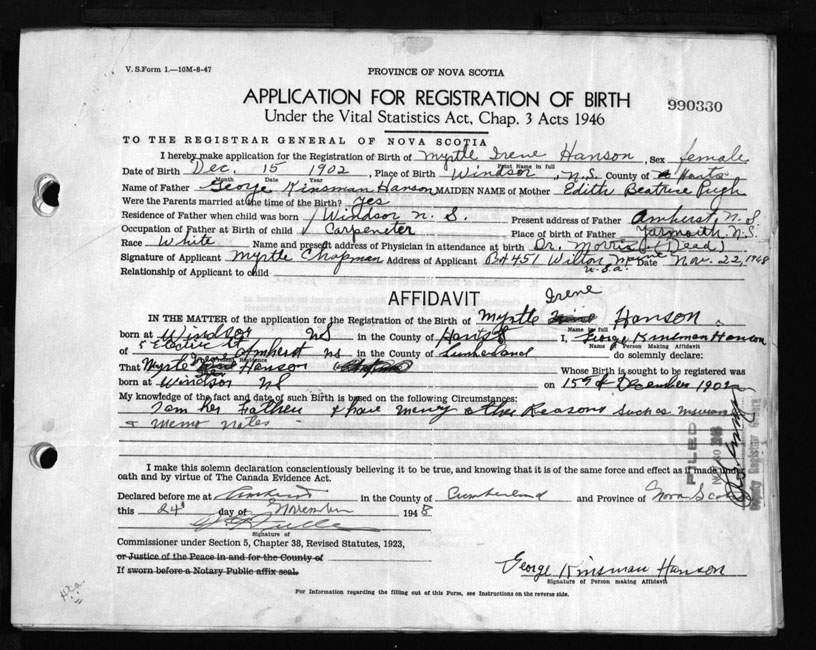 V. S. Form 1.—10M-8-47
PROVINCE OF NOVA SCOTIA
APPLICATION FOR REGISTRATION OF BIRTH
990330
Under the Vital Statistics Act, Chap. 3 Acts 1946
TO THE REGISTRAR GENERAL OF NOVA SCOTIA
I hereby make application for the Registration of Birth of Myrtle Irene Hanson, Sex female
Print Name in full
Date of Birth Dec. 15 1902, Place of Birth Windsor, N.S. County of Hants
Month Date Year
Name of Father George Kinsman Hanson MAIDEN NAME of Mother Edith Beatrice Pugh
Were the Parents married at the time of the Birth? yes
Residence of Father when child was born Windsor N. S. Present address of Father Amherst, N. S.
Occupation of Father at Birth of child Carpeneter Place of birth of Father Yarmouth N.S.
Race White Name and present address of Physician in attendance at birth Dr. Morris (Dead)
Signature of Applicant Myrtle Chapman Address of Applicant Bx 451 Wilton Maine Date Nov. 22, 1948
U.S.A.
Relationship of Applicant to child
AFFIDAVIT
Irene
IN THE MATTER of the application for the Registration of the Birth of Myrtle Hanson
Name in full
born at Windsor NS in the County of Hants I, George Kinsman Hanson
Name of Person Making Affidavit
of 5 Electric St Amherst NS in the County of Cumberland do solemnly declare:
Residence
Irene
That Myrtle Hanson Whose Birth is sought to be registered was
born at Windsor NS on 15th of December 1902
My knowledge of the fact and date of such Birth is based on the following Circumstances:
I am her Father & have many other Reasons such as
& memo notes
FILED
I make this solemn declaration conscientiously believing it to be true, and knowing that it is of the same force and effect as if made under
oath and by virtue of The Canada Evidence Act.
Declared before me at Amherst in the County of Cumberland and Province of Nova Scotia
this 24 day of November 1948
Signature of
Commissioner under Section 5, Chapter 38, Revised Statutes, 1923,
or Justice of the Peace in and for the County of
If sworn before a Notary Public affix seal.
George Kinsman Hanson
Signature of Person making Affidavit
For Information regarding the filling out of this Form, see Instructions on the reverse side.